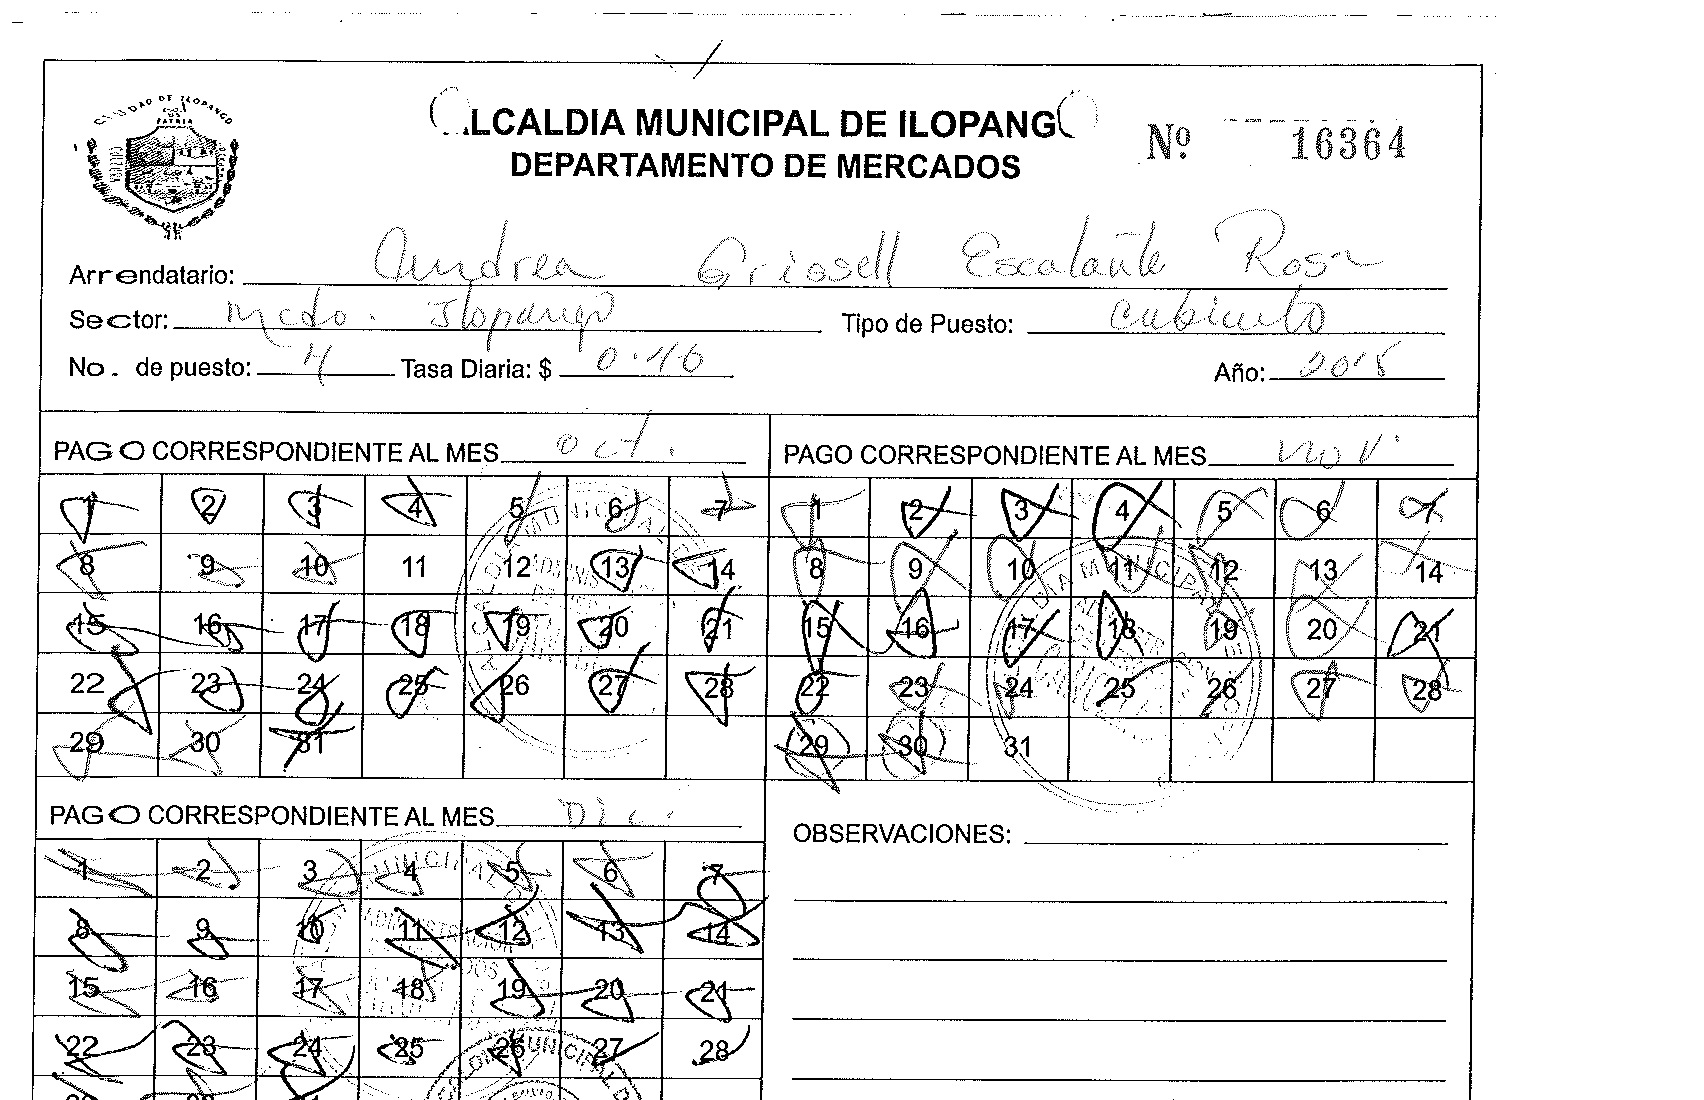 CIUDAD DE ILOPANGO
PATRIA
ALCALDIA MUNICIPAL DE ILOPANGO
Nº 16364
DEPARTAMENTO DE MERCADOS
Arrendatario: Andrea Grissell Escalante Rosa
Sector: Mcdo. Ilopango Tipo de Puesto: Cubiculo
No. de puesto: 4 Tasa Diaria: $ Año: 2018
PAGO CORRESPONDIENTE AL MES Oct.
1 2 3 4 5 6 7
8 9 10 11 12 13 14
15 16 17 18 19 20 21
22 23 24 25 26 27 28
29 30 31
PAGO CORRESPONDIENTE AL MES Nov.
1 2 3 4 5 6 7
8 9 10 11 12 13 14
15 16 17 18 19 20 21
22 23 24 25 26 27 28
29 30 31
PAGO CORRESPONDIENTE AL MES Dic.
1 2 3 4 5 6 7
8 9 10 11 12 13 14
15 16 17 18 19 20 21
22 23 24 25 26 27 28
OBSERVACIONES: